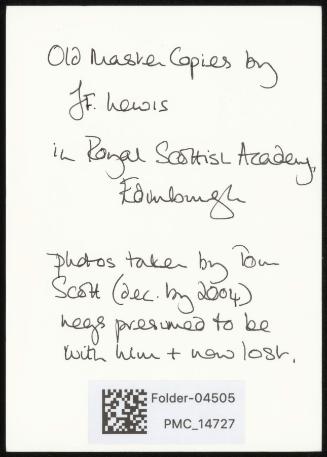 Old Master Copies by
J.F. Lewis
in Royal Scottish Academy,
Edinburgh
photos taken by Tom
Scott (dec. by 2004)
negs presumed to be
with him + now lost.
Folder-04505
PMC_14727